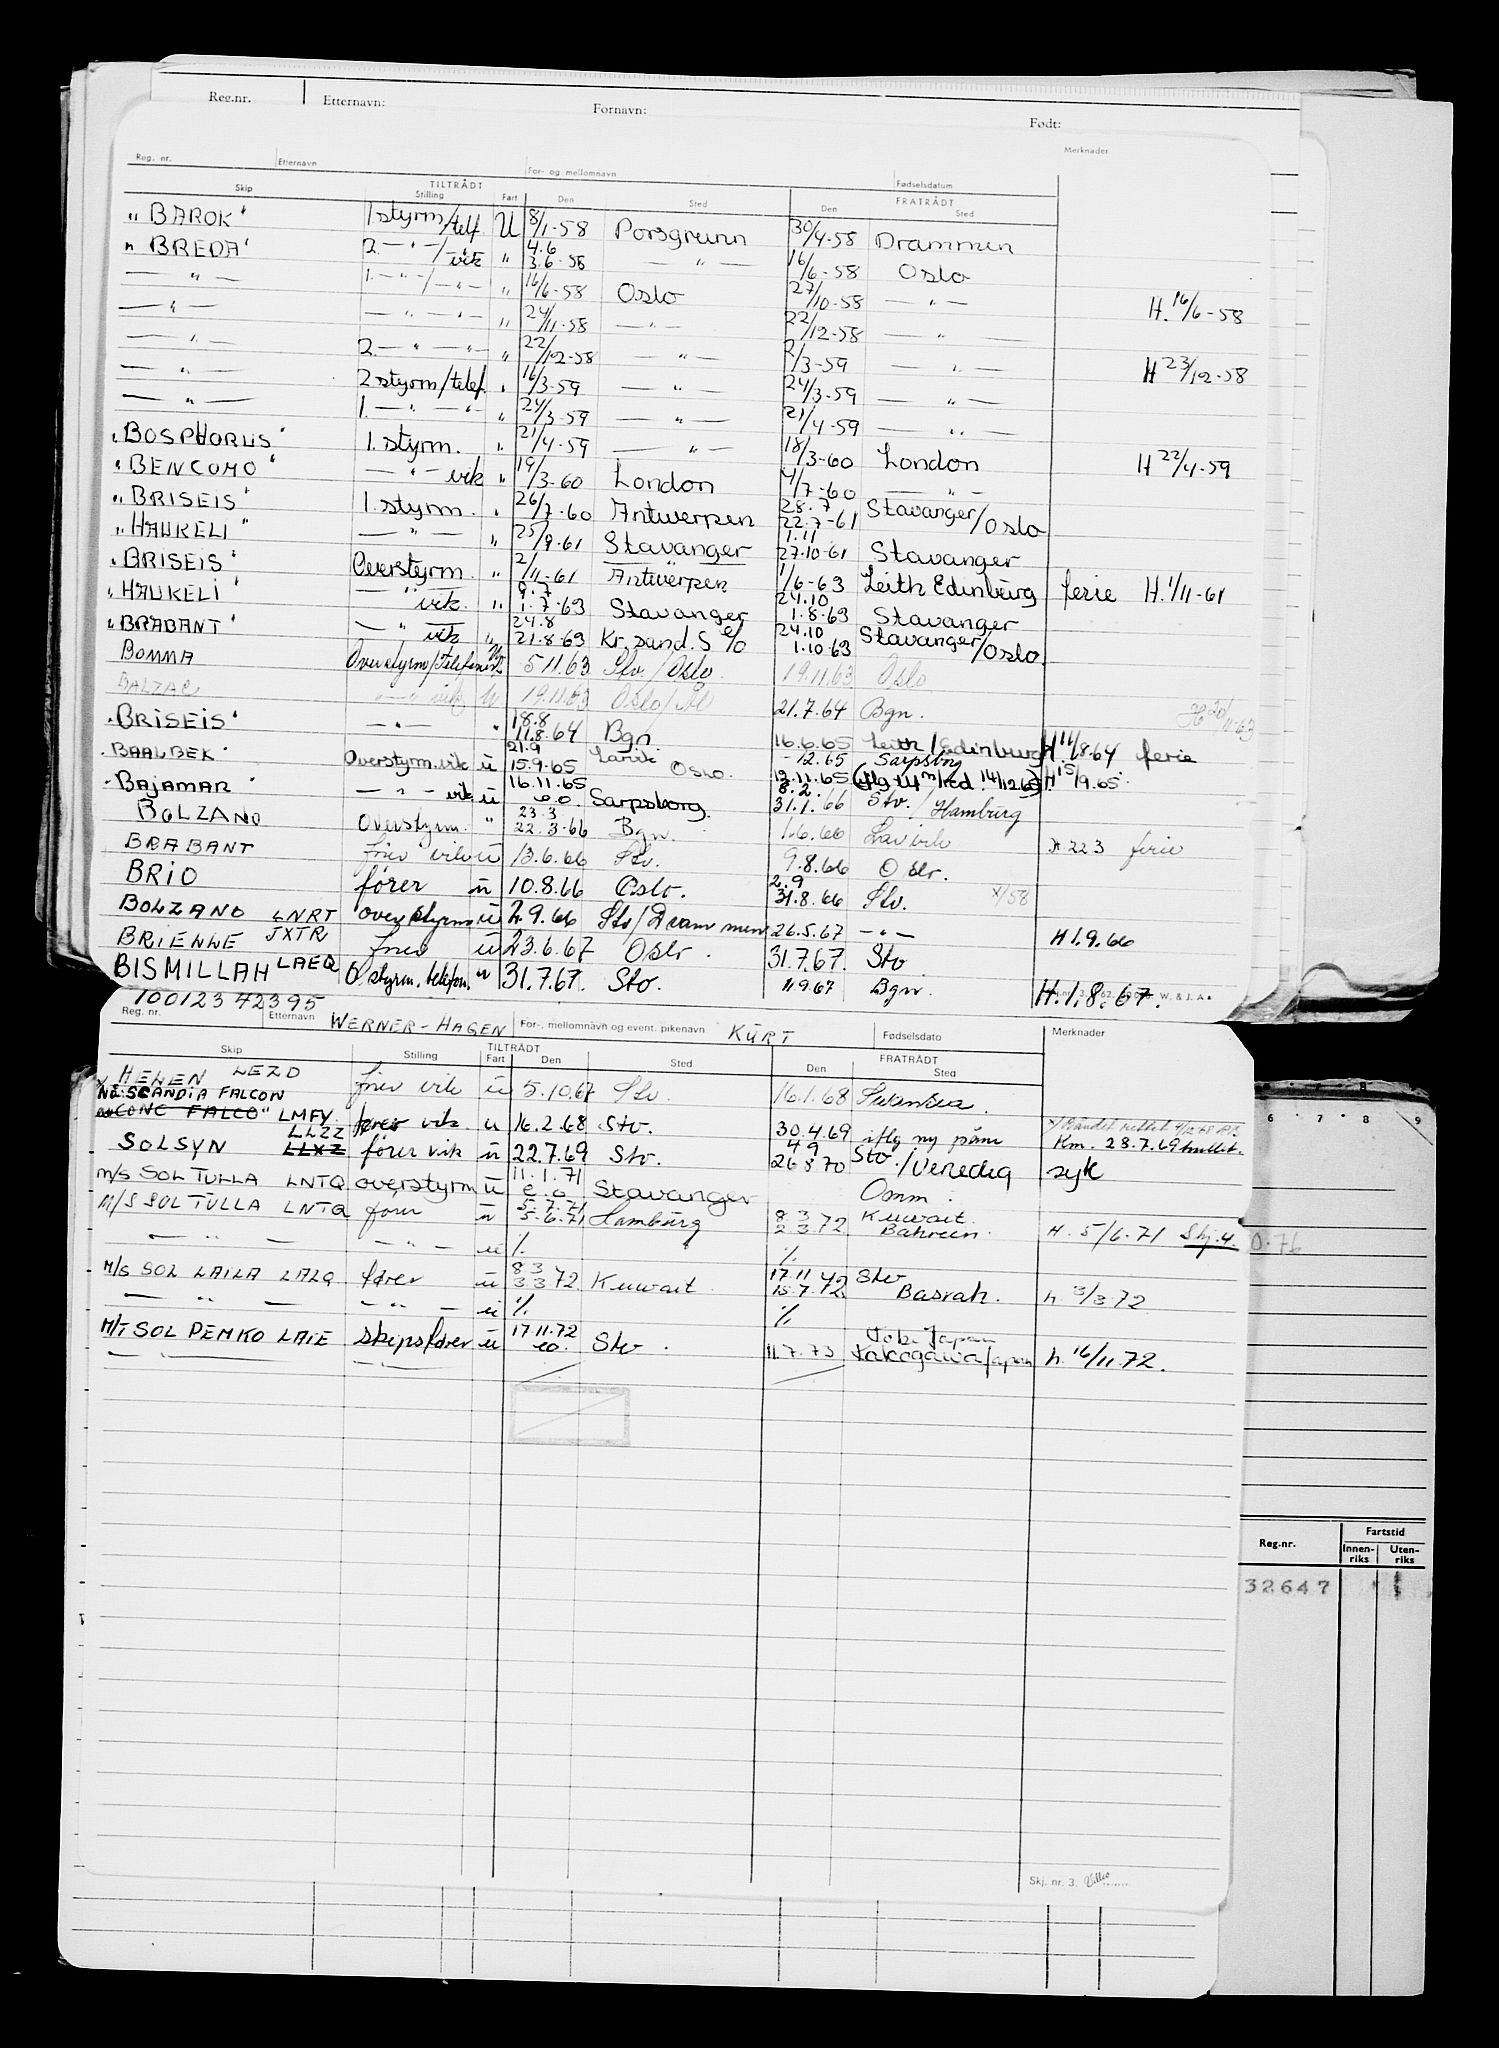 Reg.nr. Etternavn: Fornavn: Født:
Reg. nr. Etternavn For- og mellomnavn Fødselsdatum Merknader
TILTRÅDT FRATRÅDT
Skip Stilling Fart Den Sted Den Sted
"BAROK" 1 styrm/telf. U 8/1-58 Porsgrunn 30/4-58 Drammen
"BREDA" 2 — " — / vik " 4.6 3.6-58 — " — 16/6-58 Oslo
— " — 1. — " — / — " — " 16/6-58 Oslo 27/10-58 — " — H. 16/6-58
— " — — " — — " — " 24/11-58 — " — 22/12-58 — " —
— " — 2 — " — " — " 22/12-58 — " — 2/3-59 — " — H 23/12-58
— " — 2 styrm/telef. " 16/3-59 — " — 24/3-59 — " —
— " — 1. — " — " — " 24/3-59 — " — 21/4-59 — " —
"BOSPHORUS" 1. styrm. " 21/4-59 — " — 18/3-60 London H 22/4-59
"BENCOMO" — " — vik " 19/3-60 London 4/7-60 — " —
"BRISEIS" 1. styrm. " 26/7-60 Antwerpen 28.7 22.7-61 Stavanger/Oslo
"HAUKELI" — " — " 25/9-61 Stavanger 1.11 27.10-61 Stavanger
"BRISEIS" Overstyrm. " 2/11-61 Antwerpen 1/6-63 Leith Edinburg ferie H. 1/11-61
"HAUKELI" — " — vik. " 9.7 1.7-63 Stavanger 24.10 1.8-63 Stavanger
"BRABANT" — " — vik " 24.8 21.8-63 Kr.sand.S e/o 24.10 1.10-63 Stavanger/Oslo.
BOMMA Overstyrm/Telefonist 5.11.63 Stv./Oslo 19.11.63 Oslo
BALZAC — " — vik U 19.11.63 Oslo/ 21.7.64 Bgn. H 20/11-63
"BRISEIS" — " — " 18.8 11.8.64 Bgn. 16.6.65 Leith/Edinburgh H 11/8.64 ferie
"BAALBEK" Overstyrm.vik u 21.9 15.9.65 Larvik Oslo. -12.65 Sarpsborg H 15/9.65
"BAJAMAR" — " — vik u 16.11.65 e.o. Sarpsborg. 8.2. 31.1.66 Stv./Hamburg
BOLZANO overstyrm. " 23.3 22.3.66 Bgn. 1.6.66 Larvik H. 22.3 ferie
BRABANT fører vik u 13.6.66 Stv. 9.8.66 Oslo.
BRIO fører u 10.8.66 Oslo. 2.9 31.8.66 Stv. x/58
BOLZANO LNRT overstyrm u 2.9.66 Stv/Drammen 26.5.67 — " — H 1.9.66
BRIENNE JXTR fører u 23.6.67 Oslo. 31.7.67. Stv
BISMILLAH LAEQ O.styrm.telefon. u 31.7.67. Stv. 11.9.67 Bgn. H. 1.8.67.
100123 42395
Reg. nr. Etternavn WERNER-HAGEN For-, mellomnavn og event. pikenavn KURT Fødselsdato Merknader
TILTRÅDT FRATRÅDT
Skip Stilling Fart Den Sted Den Sted
HELEN LEZD fører vik u 5.10.67 Stv. 16.1.68 Swansea.
NÅ: SCANDIA FALCON
"CONC FALCO" LMFV. fører vik. u 16.2.68 Stv. 30.4.69 iflg ny påm Km. 28.7.69
SOLSYN LLZZ LLXZ fører vik u 22.7.69 Stv. 4 9 26 8 70 Stv./Venedig syk
M/S SOL TULLA LNTQ overstyrm u 11.1.71 e.o Stavanger Omm.
M/S SOL TULLA LNTQ fører u 5.7.71 5.6.71 Hamburg 8 3 2 3 72 Kuwait. Bahrein. H. 5/6.71 Skj.4.
— " — — " — u % " %
M/S SOL LAILA LALQ fører u 8 3 3.3 72 Kuwait 17 11 72 15.7.72 Stv Basrah. h. 3/3.72
— " — — " — u % %
M/T SOL PEMKO LAIE skipsfører u 17.11.72 eo. Stv. 11.7.73 Tobe Japan Kakogawa/Japan h. 16/11.72.
Skj. nr. 3.
6 7 8 9
0.76
Reg.nr. Fartstid
Innen-riks Uten-riks
32647 1